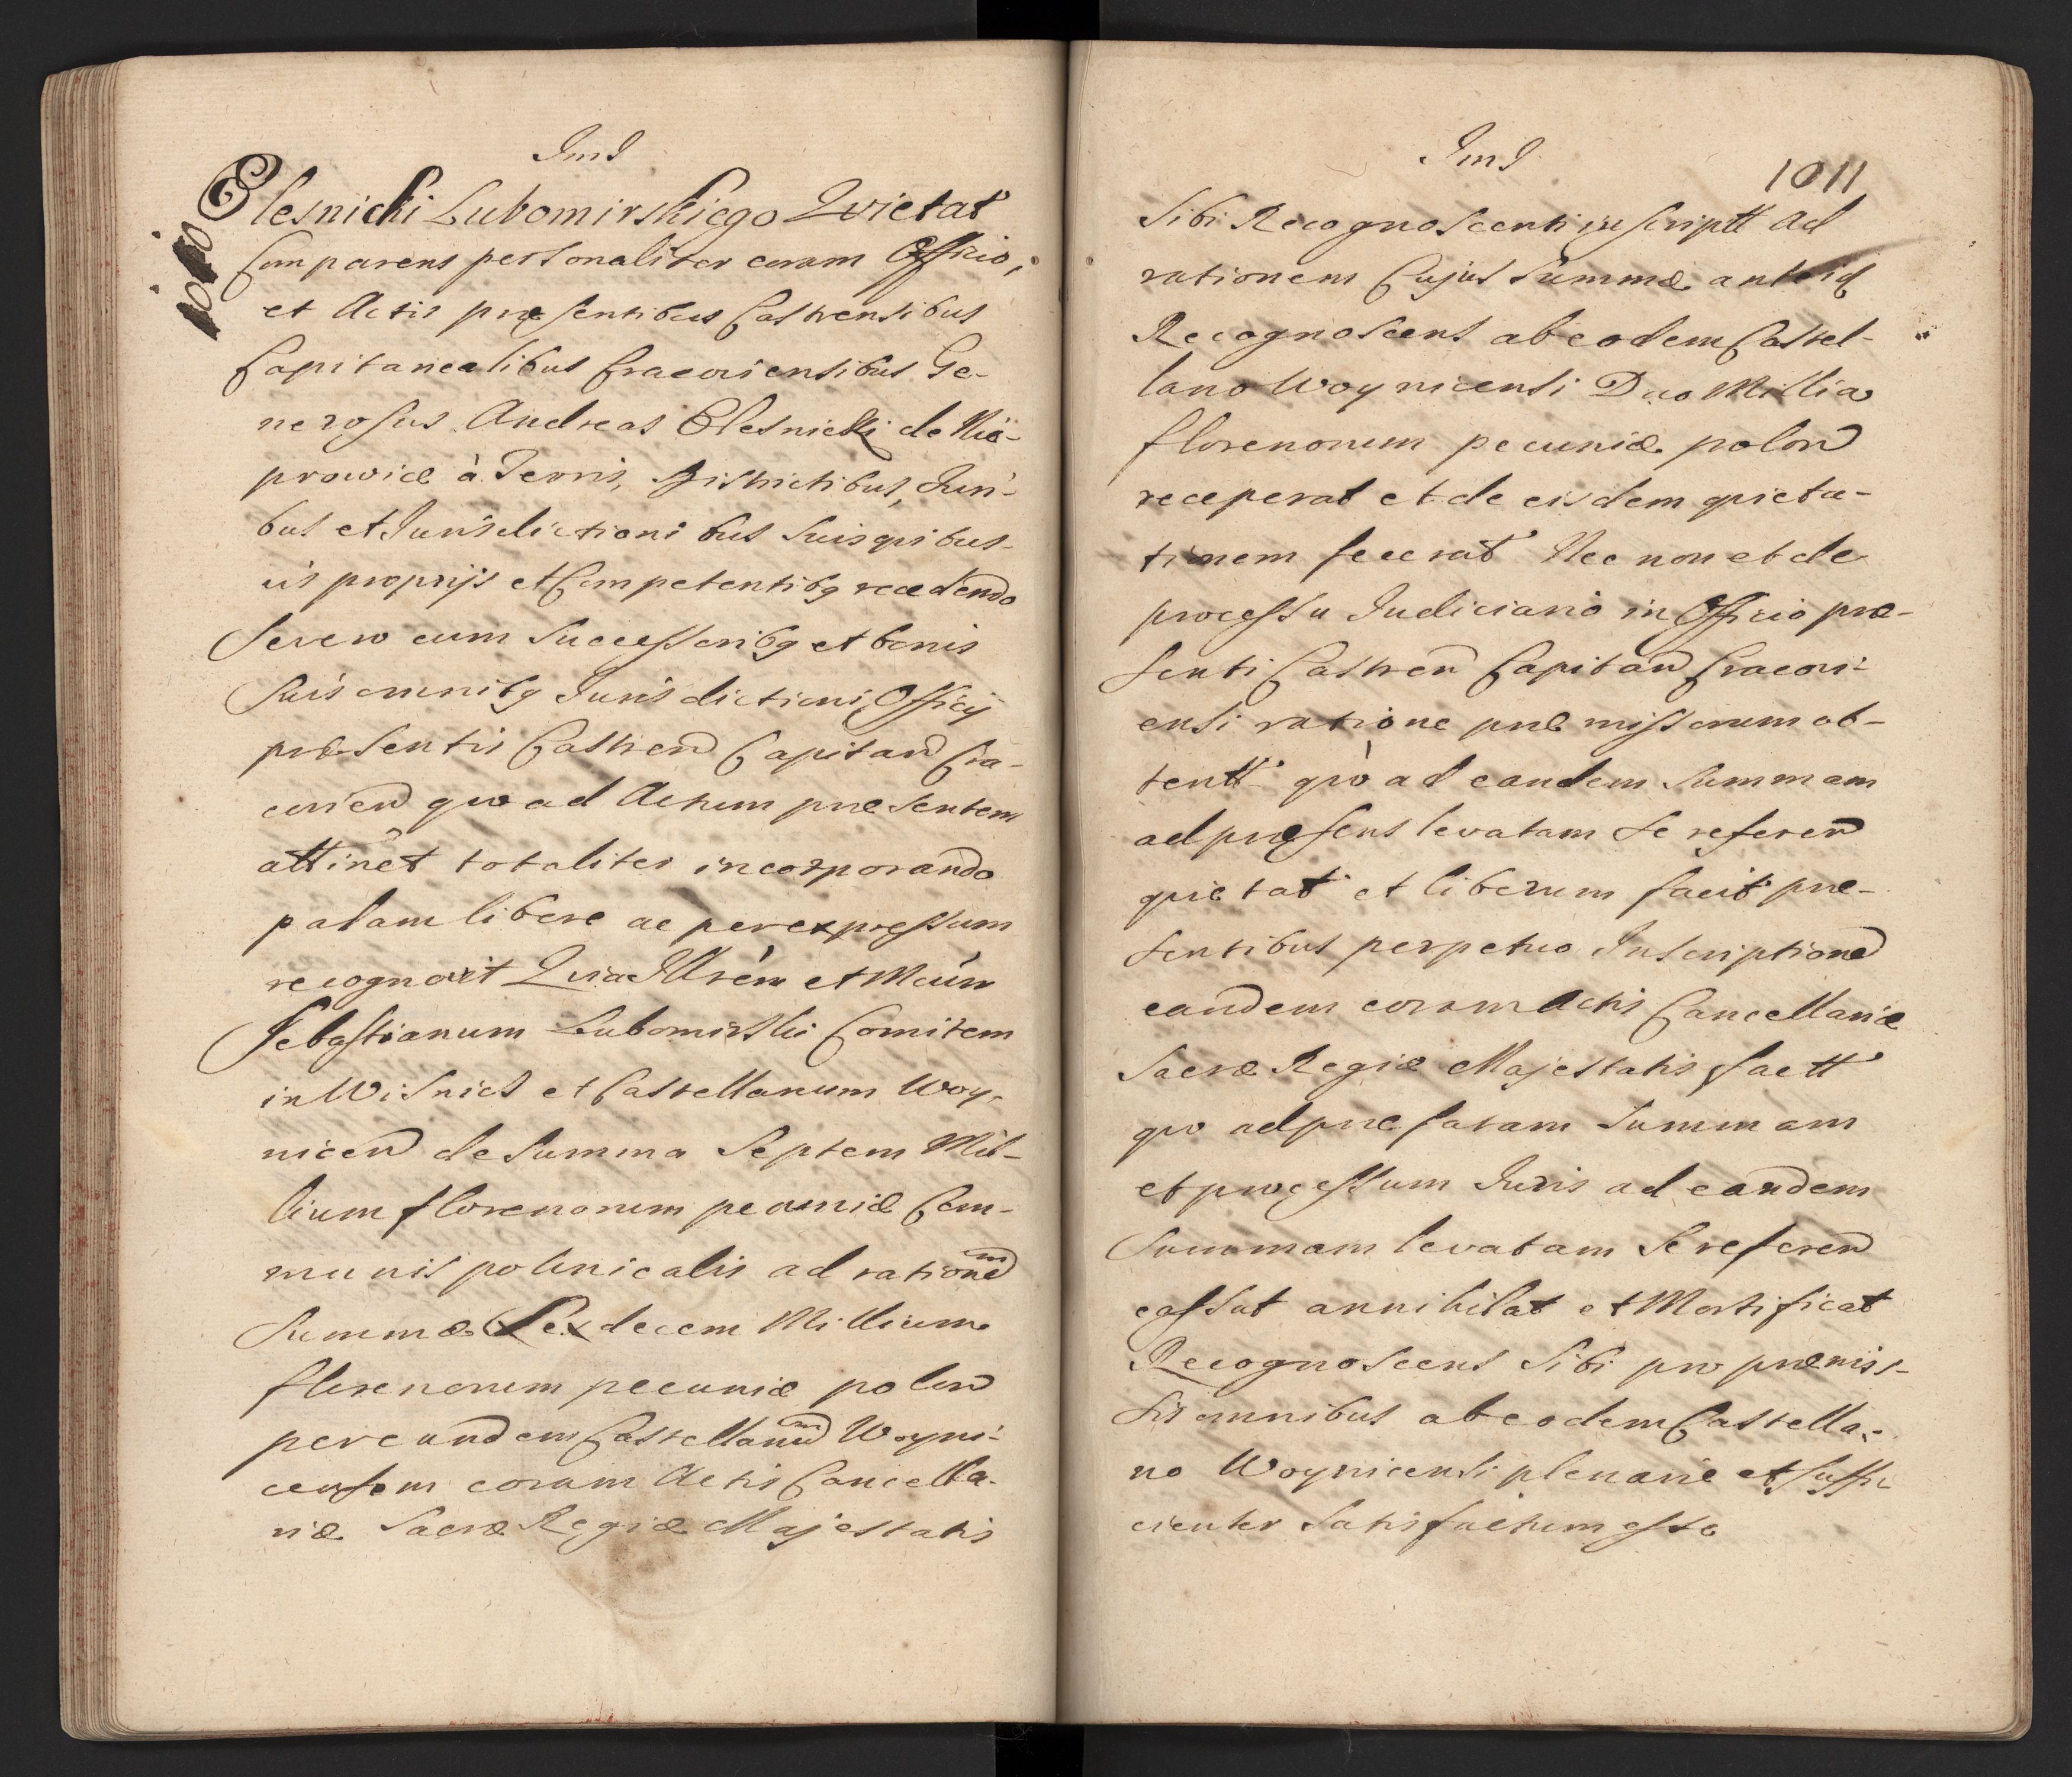 JmJ
1010
Olesnicki Lubomirskiego Qvietat
Comparens personaliter coram Officio,
et Actis præsentibus Castrensibus
Capitanealibus Cracoviensibus Ge-
nerosus Andreas Olesnicki de Nie-
prowice à Terris, Districtibus, Juri-
bus et Jurisdictionibus suis qvibus-
vis proprijs et Competentibq recedendo
Seseve cum Successoribq et bonis
Suis omnibq Jurisdictioni Officij
præsentis Castren Capitan Cra-
covien qvo ad Actum præsentem
attinet totaliter incorporando
palam libere ac per expressum
recognovit Qvia Illrem et Mcum
Sebastianum Lubomirski Comitem
in Wisnicz et Castellanum Woy-
nicen de Summa Septem Mil-
lium florenorum pecuniæ Com-
munis polonicalis ad rationem
Summæ Sexdecem Millium
florenorum pecuniæ polon
per eundem Castellanum Woyni-
censem coram Actis Cancella-
riæ Sacræ Regiæ Majestatis
JmJ
1011
Sibi Recognoscenti inscriptt Ad
rationem Cujus Summæ anteiq
Recognoscens ab eodem Castel-
lano Woynicensi Duo Millia
florenorum pecuniæ polon
receperat et de eisdem qvieta-
tionem fecerat Nec non et de
processu Judiciario in Officio præ-
senti Castren Capitan Cracovi-
ensi ratione præmissorum ob-
tentt qvò ad eandem Summam
ad præsens levatam se referen
qvietat et liberum facit præ-
sentibus perpetuo Inscriptione
eandem coram Actis Cancellariæ
Sacræ Regiæ Majestatis factt
qvo ad præfatam Summam
et processum Juris ad eandem
Summam levatam Se referen
cassat annihilat et Mortificat
Recognoscens Sibi pro præmis-
sis omnibus ab eodem Castella-
no Woynicensi plenarie et suffi-
cienter Satisfactum esse